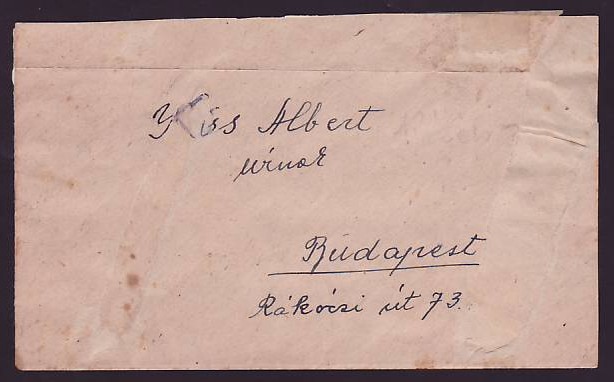 Kiss Albert
úrnak
Budapest
Rákóczi út 73.